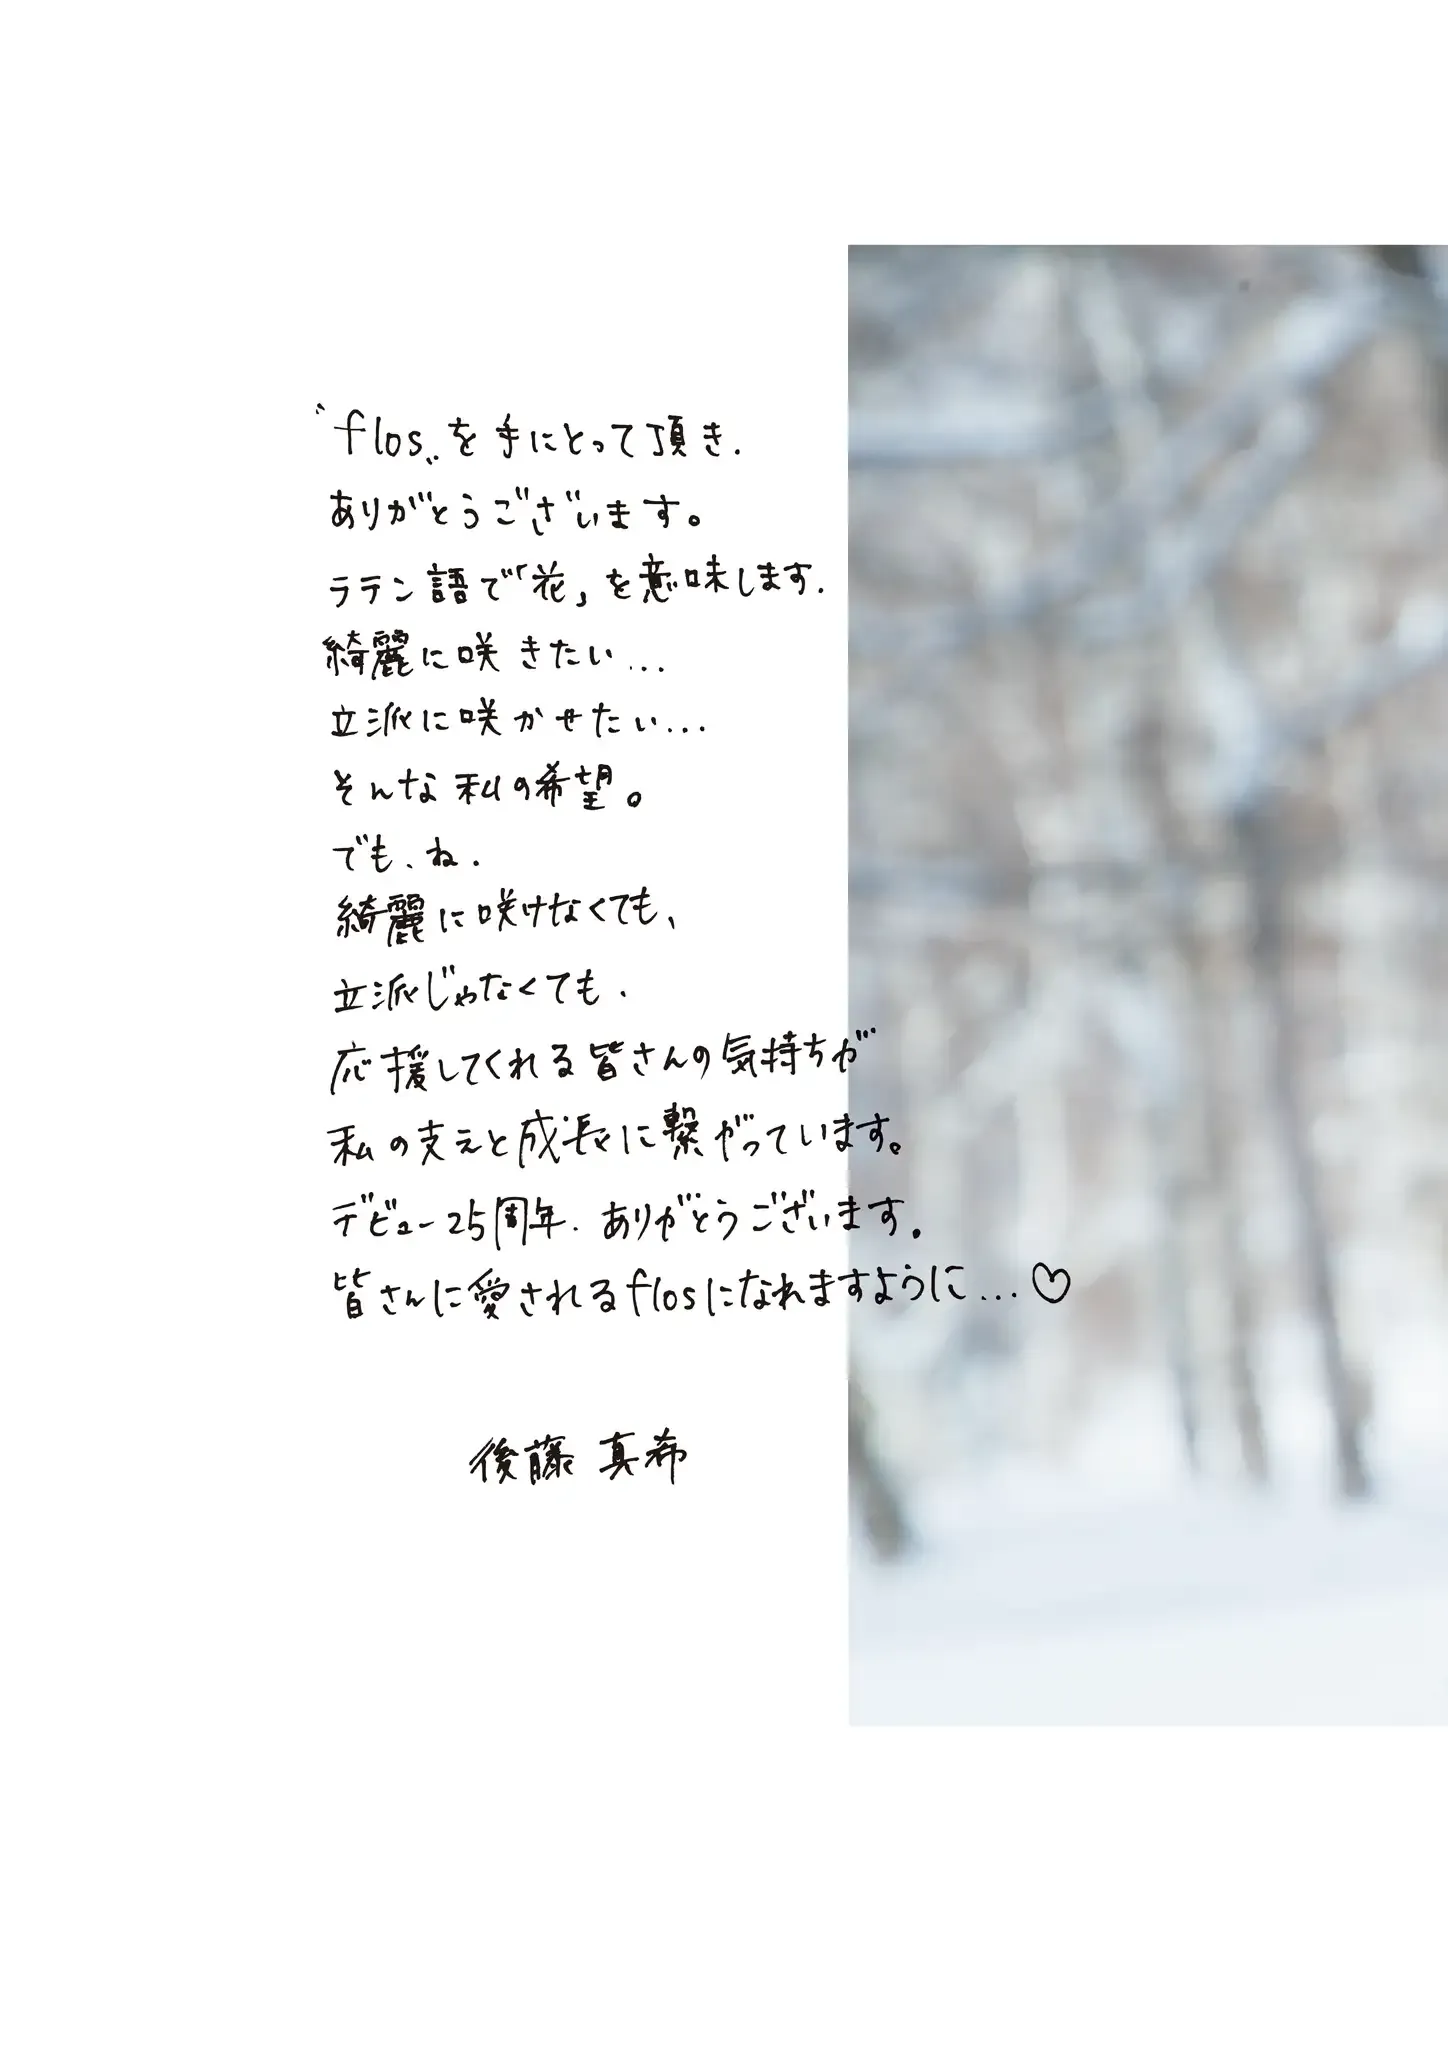 〝flos〟を手にとって頂き、
ありがとうございます。
ラテン語で「花」を意味します.
綺麗に咲きたい...
立派に咲かせたい...
そんな私の希望。
でも、ね.
綺麗に咲けなくても、
立派じゃなくても.
応援してくれる皆さんの気持ちが
私の支えと成長に繋がっています。
デビュー25周年.ありがとうございます.
皆さんに愛されるflosになれますように...♡
後藤 真希